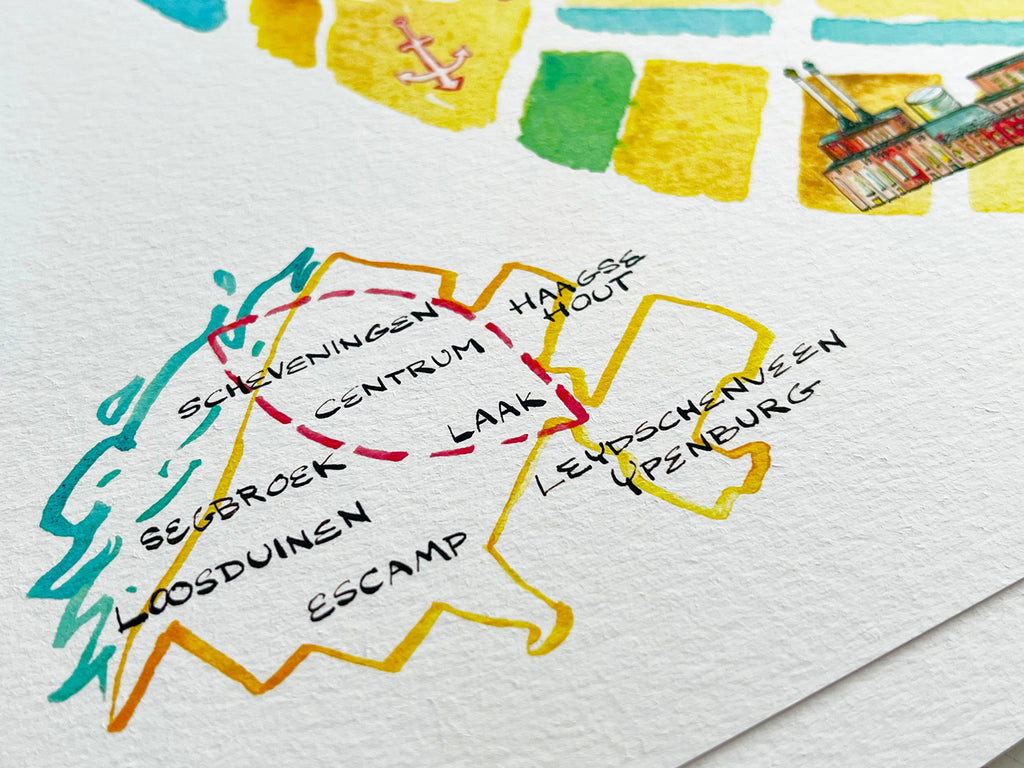 HAAGSE
HOUT
SCHEVENINGEN
CENTRUM
LAAK
LEYDSCHENVEEN
YPENBURG
SEGBROEK
LOOSDUINEN
ESCAMP